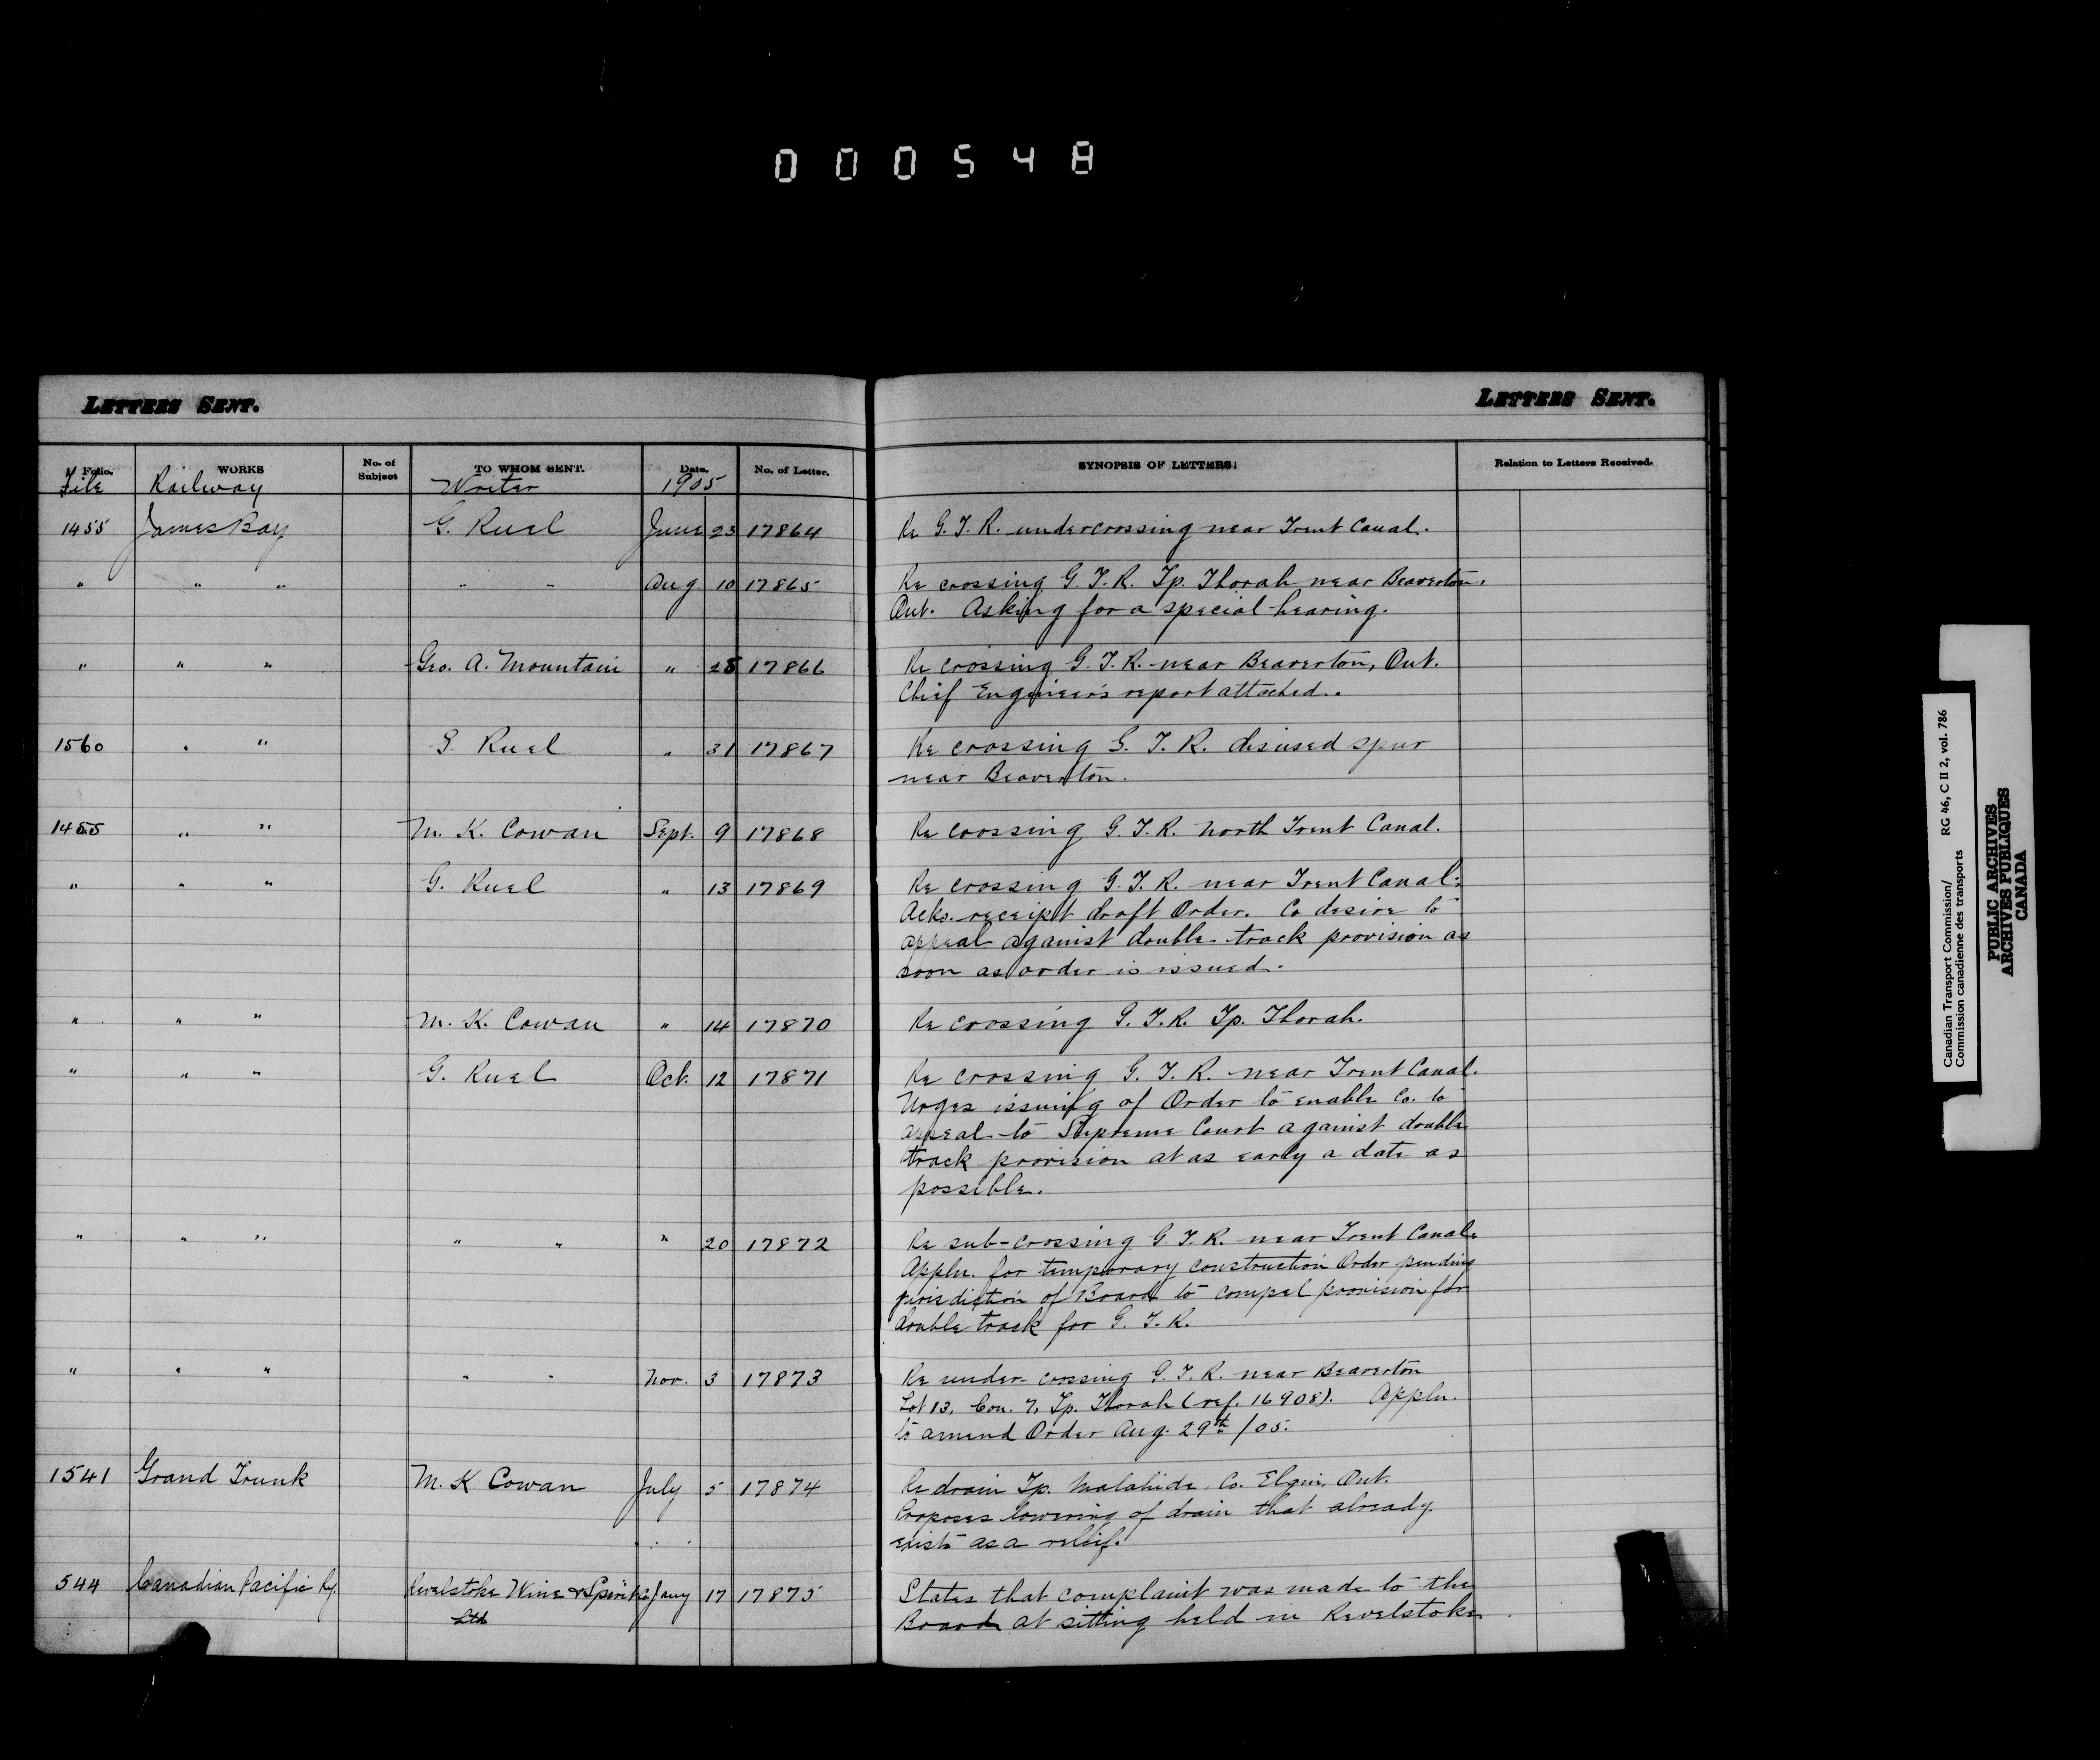 000548
LETTERS SENT.
LETTERS SENT.
Folio. WORKS No. of Subject TO WHOM SENT. Date. No. of Letter. SYNOPSIS OF LETTERS. Relation to Letters Received.
File Railway Writer 1905
1455 James Bay G. Ruel June 23 17864 Re G. T. R. undercrossing near Trent Canal.
" " " " " Aug 10 17865 Re crossing G. T. R. Tp. Thorah near Beaverton,
Ont. Asking for a special hearing.
" " " Geo. A. Mountain " 28 17866 Re crossing G. T. R. near Beaverton, Ont.
Chief Engineer's report attached.
1560 " " G Ruel " 31 17867 Re crossing G. T. R. disused spur
near Beaverton.
1455 " " M. K. Cowan Sept. 9 17868 Re crossing G. T. R. North Trent Canal.
" " " G. Ruel " 13 17869 Re crossing G. T. R. near Trent Canal.
Acks. receipt draft Order. Co desire to
appeal against double-track provision as
soon as order is issued.
" " " M. K. Cowan " 14 17870 Re crossing G. T. R. Tp. Thorah.
" " " G. Ruel Oct. 12 17871 Re crossing G. T. R. near Trent Canal.
Urges issuing of Order to enable Co. to
appeal to Supreme Court against double
track provision at as early a date as
possible.
" " " " " " 20 17872 Re sub-crossing G T. R. near Trent Canal.
Appln. for temporary construction Order pending
jurisdiction of Board to compel provision for
double track for G. T. R.
" " " " " Nov. 3 17873 Re under-crossing G. T. R. near Beaverton
Lot 13, Con. 7, Tp. Thorah (ref. 16908). Appln.
to amend Order Aug. 29th /05.
1541 Grand Trunk M. K Cowan July 5 17874 Re drain Tp. Malahide, Co. Elgin, Ont.
Proposes lowering of drain that already
exists as a relief.
544 Canadian Pacific Ry. Revelstoke Wine & Spirit Co Jany 17 17875 States that complaint was made to the
Ltd Board at sitting held in Revelstoke
Canadian Transport Commission/ RG 46, C II 2, vol. 786
Commission canadienne des transports
PUBLIC ARCHIVES
ARCHIVES PUBLIQUES
CANADA